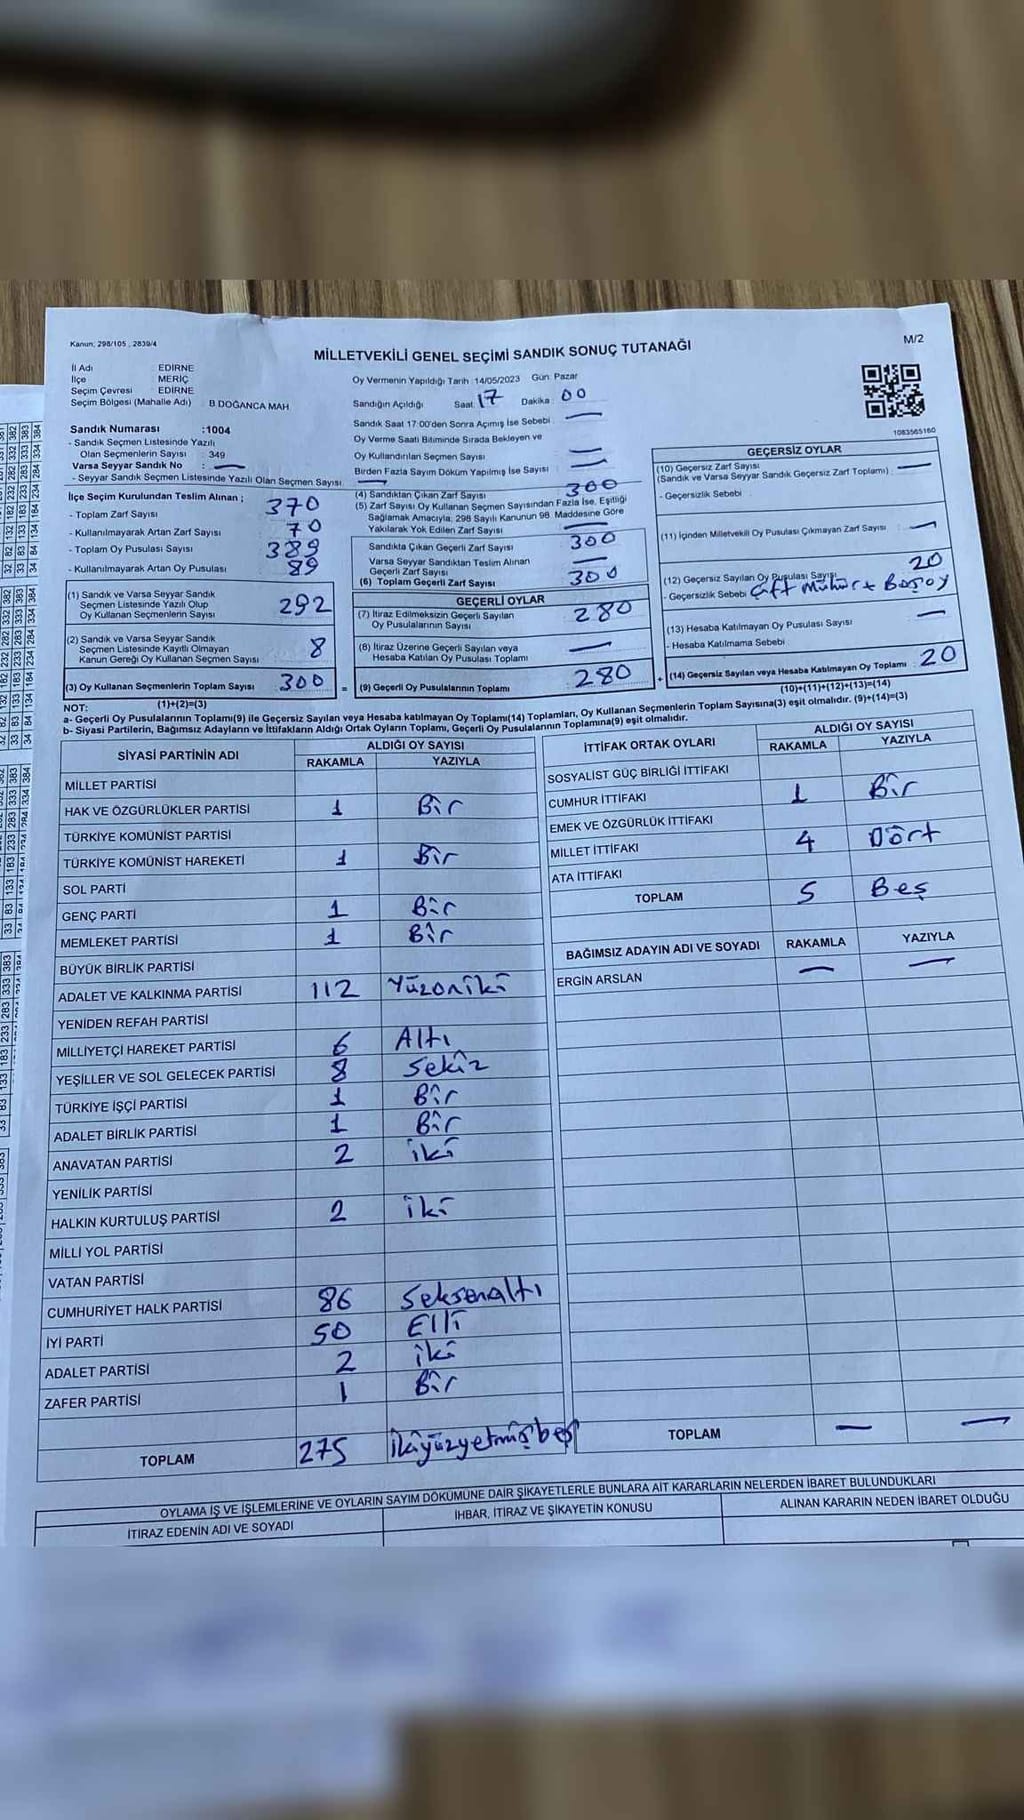 Kanun; 298/105 , 2839/4
MİLLETVEKİLİ GENEL SEÇİMİ SANDIK SONUÇ TUTANAĞI
M/2
İl Adı EDİRNE
İlçe MERİÇ
Seçim Çevresi EDİRNE
Seçim Bölgesi (Mahalle Adı) : B.DOĞANCA MAH.
Oy Vermenin Yapıldığı Tarih :14/05/2023 Gün: Pazar
Sandığın Açıldığı Saat: 17 Dakika: 00
Sandık Saat 17:00'den Sonra Açımış İse Sebebi : —
Oy Verme Saati Bitiminde Sırada Bekleyen ve
Oy Kullandırılan Seçmen Sayısı —
Birden Fazla Sayım Döküm Yapılmış İse Sayısı —
1083565160
Sandık Numarası :1004
- Sandık Seçmen Listesinde Yazılı
Olan Seçmenlerin Sayısı : 349
Varsa Seyyar Sandık No : —
- Seyyar Sandık Seçmen Listesinde Yazılı Olan Seçmen Sayısı —
İlçe Seçim Kurulundan Teslim Alınan ;
- Toplam Zarf Sayısı 370
- Kullanılmayarak Artan Zarf Sayısı 70
- Toplam Oy Pusulası Sayısı 389
- Kullanılmayarak Artan Oy Pusulası 89
(1) Sandık ve Varsa Seyyar Sandık
Seçmen Listesinde Yazılı Olup
Oy Kullanan Seçmenlerin Sayısı 292
(2) Sandık ve Varsa Seyyar Sandık
Seçmen Listesinde Kayıtlı Olmayan
Kanun Gereği Oy Kullanan Seçmen Sayısı 8
(3) Oy Kullanan Seçmenlerin Toplam Sayısı 300
(1)+(2)=(3)
(4) Sandıktan Çıkan Zarf Sayısı 300
(5) Zarf Sayısı Oy Kullanan Seçmen Sayısından Fazla İse, Eşitliği
Sağlamak Amacıyla, 298 Sayılı Kanunun 98. Maddesine Göre
Yakılarak Yok Edilen Zarf Sayısı —
Sandıkta Çıkan Geçerli Zarf Sayısı 300
Varsa Seyyar Sandıktan Teslim Alınan
Geçerli Zarf Sayısı —
(6) Toplam Geçerli Zarf Sayısı 300
GEÇERLİ OYLAR
(7) İtiraz Edilmeksizin Geçerli Sayılan
Oy Pusulalarının Sayısı 280
(8) İtiraz Üzerine Geçerli Sayılan veya
Hesaba Katılan Oy Pusulası Toplamı —
= (9) Geçerli Oy Pusulalarının Toplamı 280
GEÇERSİZ OYLAR
(10) Geçersiz Zarf Sayısı
(Sandık ve Varsa Seyyar Sandık Geçersiz Zarf Toplamı) : —
- Geçersizlik Sebebi :
(11) İçinden Milletvekili Oy Pusulası Çıkmayan Zarf Sayısı : —
(12) Geçersiz Sayılan Oy Pusulası Sayısı 20
- Geçersizlik Sebebi Çift Mühür + Boş oy
(13) Hesaba Katılmayan Oy Pusulası Sayısı : —
- Hesaba Katılmama Sebebi :
+ (14) Geçersiz Sayılan veya Hesaba Katılmayan Oy Toplamı : 20
(10)+(11)+(12)+(13)=(14)
NOT:
a- Geçerli Oy Pusulalarının Toplamı(9) ile Geçersiz Sayılan veya Hesaba katılmayan Oy Toplamı(14) Toplamları, Oy Kullanan Seçmenlerin Toplam Sayısına(3) eşit olmalıdır. (9)+(14)=(3)
b- Siyasi Partilerin, Bağımsız Adayların ve İttifakların Aldığı Ortak Oyların Toplamı, Geçerli Oy Pusulalarının Toplamına(9) eşit olmalıdır.
SİYASİ PARTİNİN ADI ALDIĞI OY SAYISI
RAKAMLA YAZIYLA
MİLLET PARTİSİ
HAK VE ÖZGÜRLÜKLER PARTİSİ 1 Bir
TÜRKİYE KOMÜNİST PARTİSİ
TÜRKİYE KOMÜNİST HAREKETİ 1 Bir
SOL PARTİ
GENÇ PARTİ 1 Bir
MEMLEKET PARTİSİ 1 Bir
BÜYÜK BİRLİK PARTİSİ
ADALET VE KALKINMA PARTİSİ 112 Yüzoniki
YENİDEN REFAH PARTİSİ
MİLLİYETÇİ HAREKET PARTİSİ 6 Altı
YEŞİLLER VE SOL GELECEK PARTİSİ 8 Sekiz
TÜRKİYE İŞÇİ PARTİSİ 1 Bir
ADALET BİRLİK PARTİSİ 1 Bir
ANAVATAN PARTİSİ 2 iki
YENİLİK PARTİSİ
HALKIN KURTULUŞ PARTİSİ 2 iki
MİLLİ YOL PARTİSİ
VATAN PARTİSİ
CUMHURİYET HALK PARTİSİ 86 Seksenaltı
İYİ PARTİ 50 Elli
ADALET PARTİSİ 2 iki
ZAFER PARTİSİ 1 Bir
TOPLAM 275 ikiyüzyetmişbeş
İTTİFAK ORTAK OYLARI ALDIĞI OY SAYISI
RAKAMLA YAZIYLA
SOSYALİST GÜÇ BİRLİĞİ İTTİFAKI
CUMHUR İTTİFAKI 1 Bir
EMEK VE ÖZGÜRLÜK İTTİFAKI
MİLLET İTTİFAKI 4 Dört
ATA İTTİFAKI
TOPLAM 5 Beş
BAĞIMSIZ ADAYIN ADI VE SOYADI RAKAMLA YAZIYLA
ERGİN ARSLAN — —
TOPLAM — —
OYLAMA İŞ VE İŞLEMLERİNE VE OYLARIN SAYIM DÖKÜMÜNE DAİR ŞİKAYETLERLE BUNLARA AİT KARARLARIN NELERDEN İBARET BULUNDUKLARI
İTİRAZ EDENİN ADI VE SOYADI İHBAR, İTİRAZ VE ŞİKAYETİN KONUSU ALINAN KARARIN NEDEN İBARET OLDUĞU